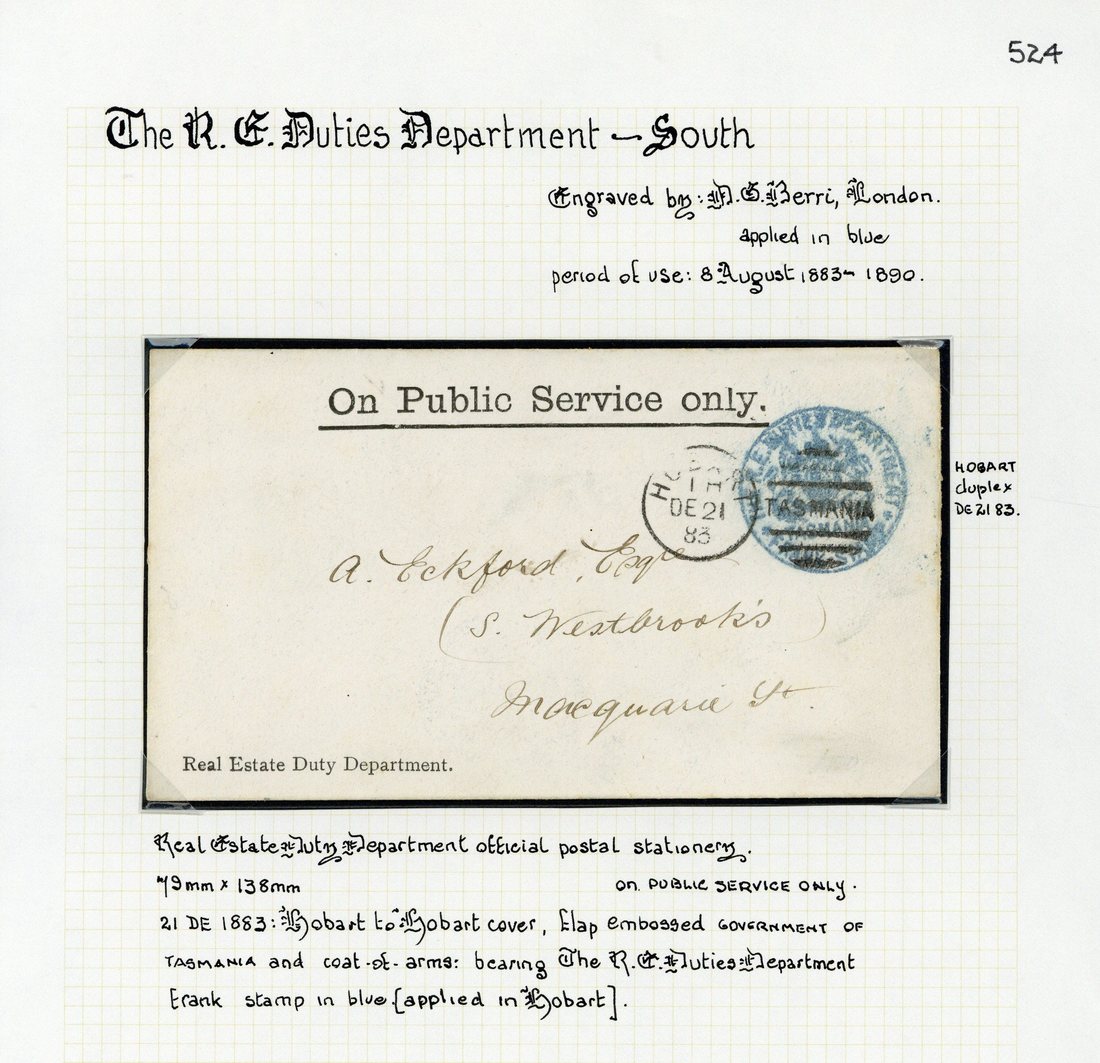 524
The R. E. Duties Department – South
Engraved by: D. G. Berri, London.
applied in blue
period of use: 8 August 1883 – 1890.
On Public Service only.
R.E. DUTIES DEPARTMENT
HOBART
DE 21
83
TASMANIA
TASMANIA
HOBART
duplex
DE 21 83.
A. Eckford, Esqre
(S. Westbrook's)
Macquarie St.
Real Estate Duty Department.
Real Estate Duty Department official postal stationery.
79mm x 138mm on PUBLIC SERVICE ONLY.
21 DE 1883: Hobart to Hobart cover, flap embossed GOVERNMENT OF
TASMANIA and coat-of-arms: bearing The R.E. Duties Department
frank stamp in blue. [applied in Hobart].